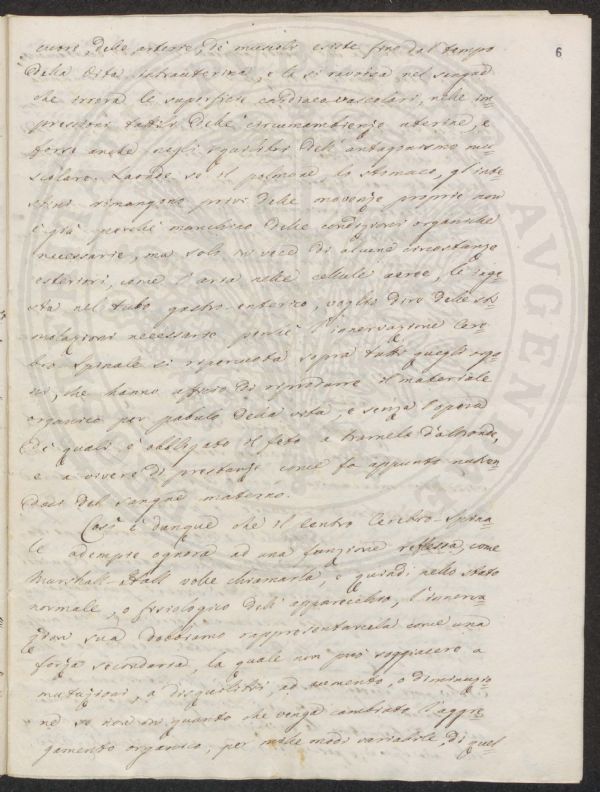 6
cuore, delle arterie, de' muscoli esiste fino dal tempo
della vita intrauterina, e la si ravvisa nel sangue
che irrora le superficie cardiaco-vascolari, nelle im-
pressioni tattili delle circumambienze uterine, e
forse anche negli squilibri dell'antagonismo mu-
scolare. Laonde se il polmone, lo stomaco, gl'inte-
stini rimangono privi delle movenze proprie non
è già perché manchino delle condizioni organiche
necessarie, ma solo in vece di alcune circostanze
esteriori, come l'aria nelle cellule aeree, le inge-
sta nel tubo gastro-enterico, voglio dire delle sti-
molazioni necessarie perché l'innervazione Cere-
bro Spinale si ripercuota sopra tutti quegli orga-
ni, che hanno uffizio di riprodurre il materiale
organico per pabulo della vita, e senza l'opera
de' quali è obbligato il feto a trarnelo d'altronde,
e a vivere di prestanze come fa appunto nutren-
dosi del sangue materno.
Così è dunque che il Centro Cerebro-Spina-
le adempie ognora ad una funzione reflessa, come
Marshall-Hall volle chiamarla, e quindi nello stato
normale, o fisiologico dell'apparecchio, l'innerva-
zione sua dobbiamo rappresentarcela come una
forza secondaria, la quale non può soggiacere a
mutazioni, a disquilibri, ad aumento, o diminuzio-
ne se non in quanto che venga cambiato l'aggre-
gamento organico, per mille modi variabile, di quel
VNGIT
AVGENDAE